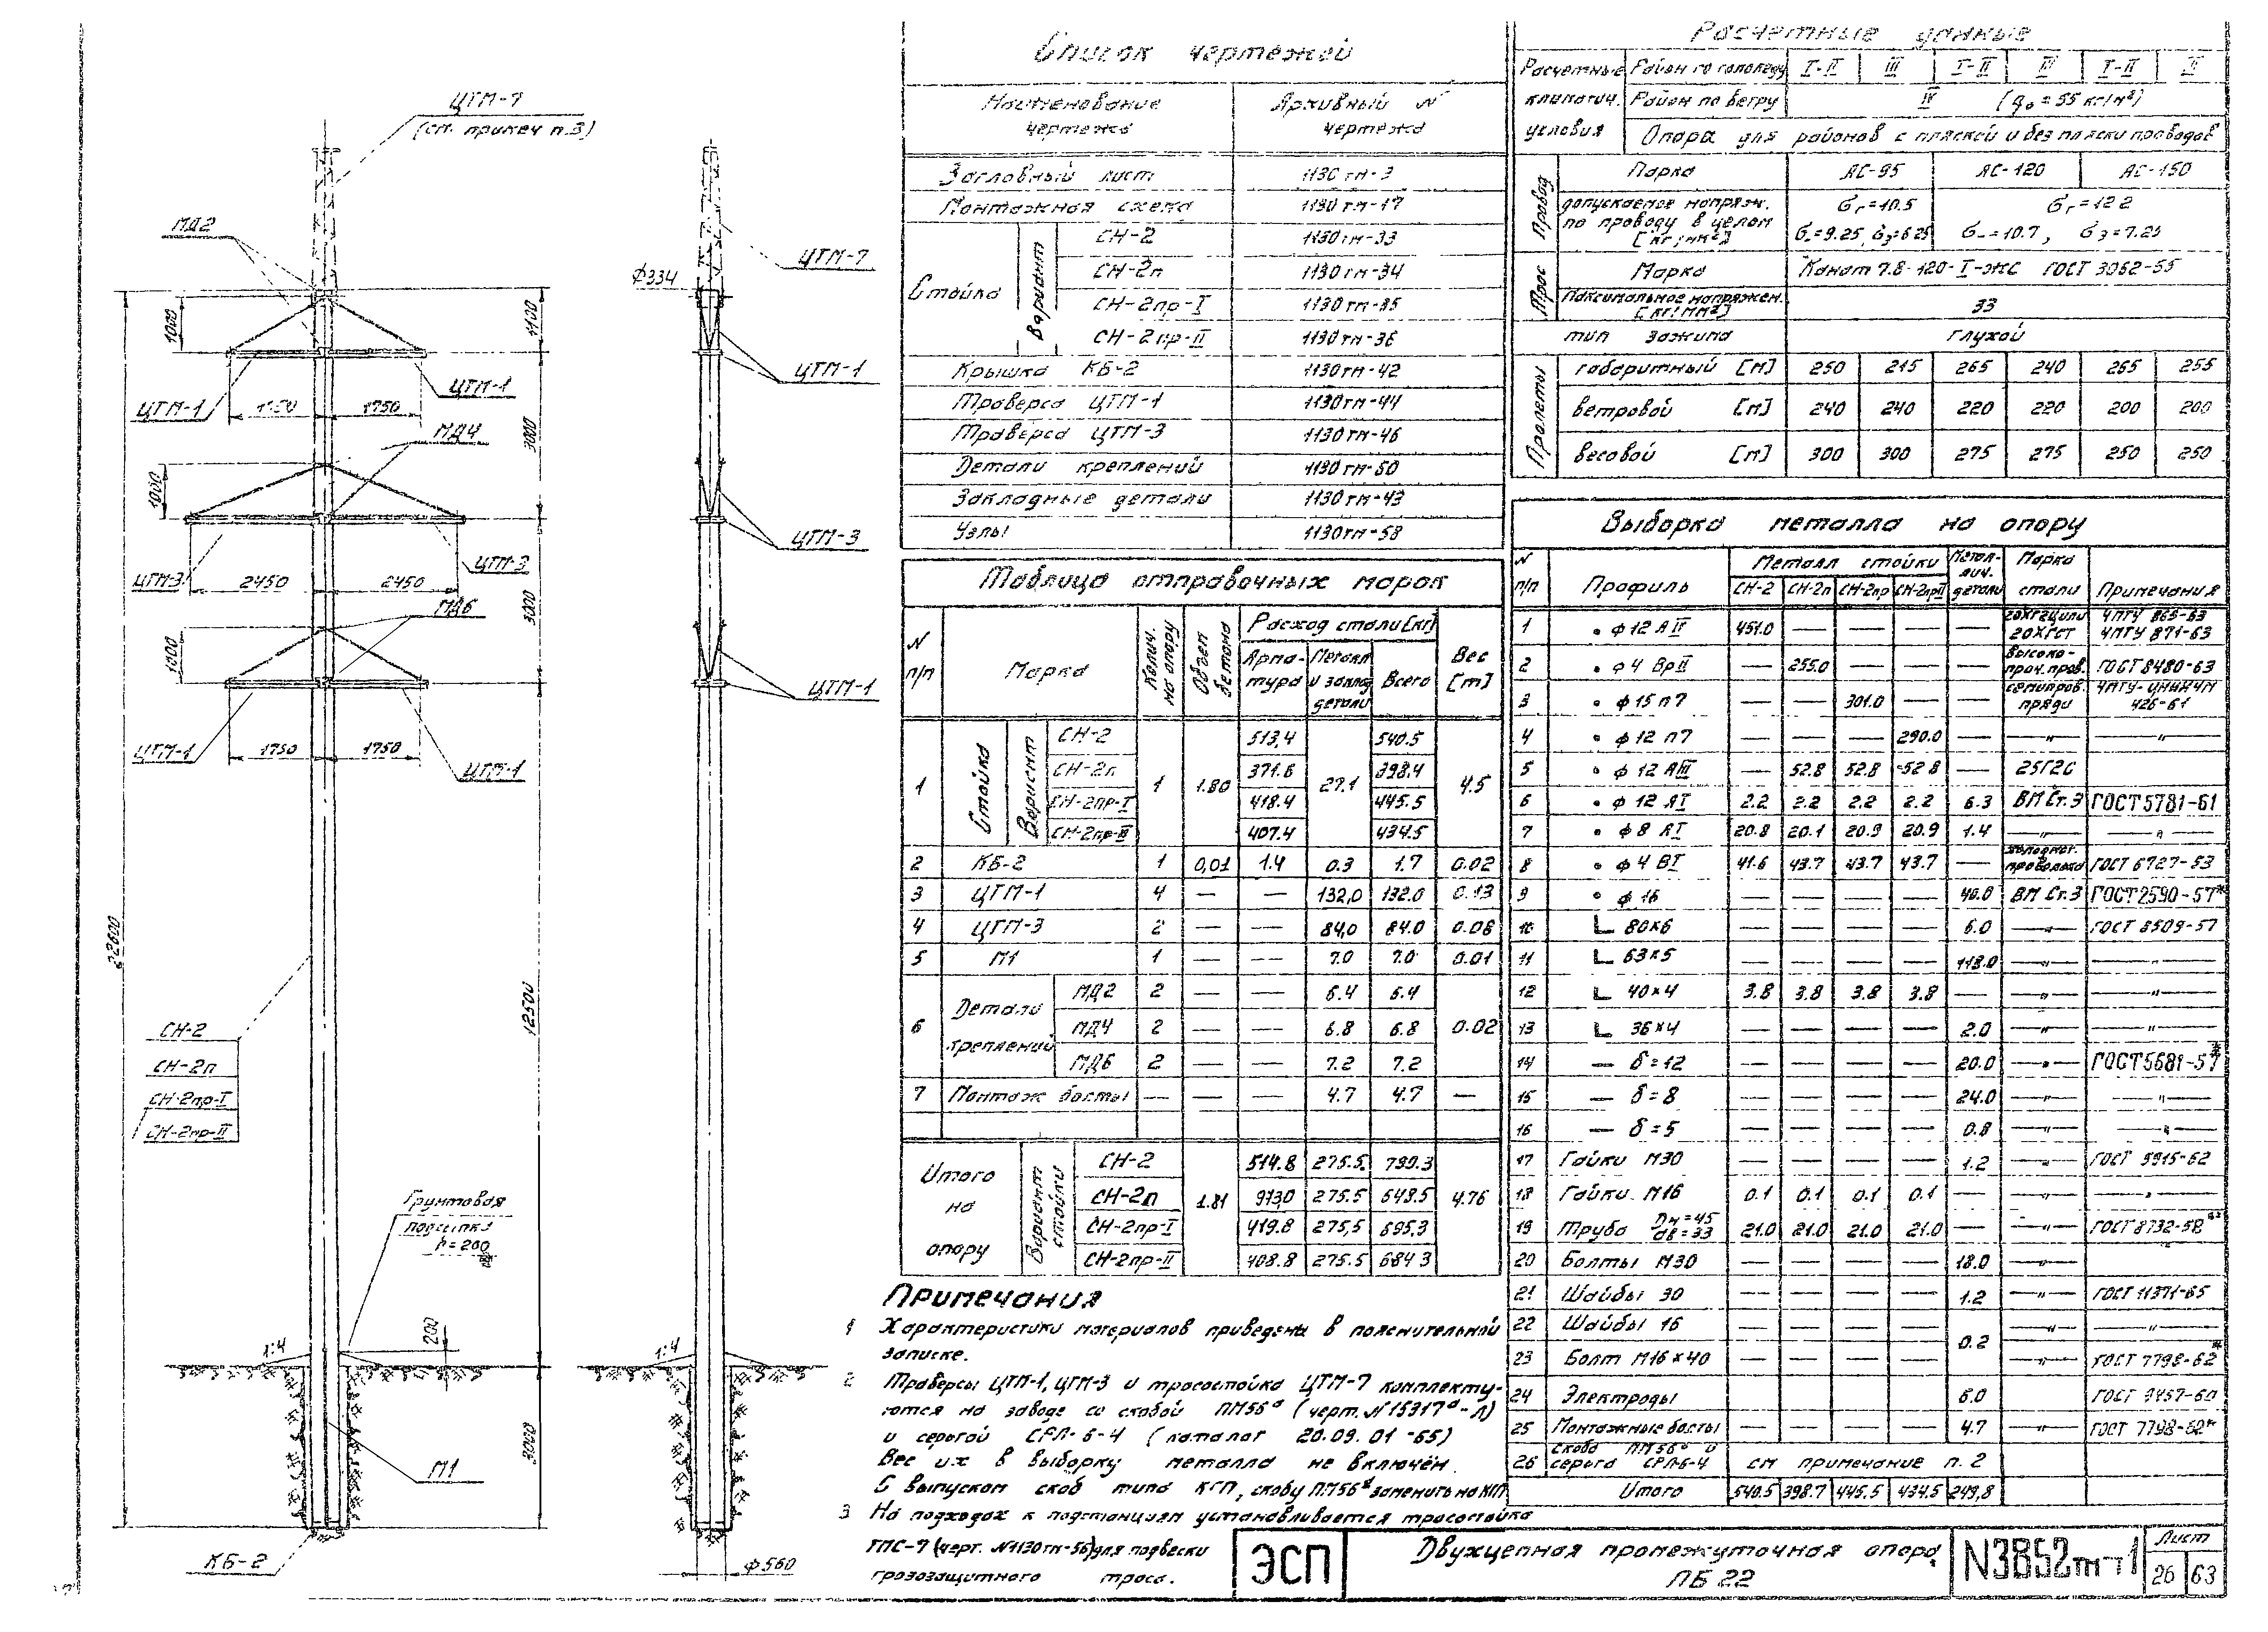 ЦТМ-7
(см. примеч п.3)
МД2
1000
1100
ЦТМ-1
ЦТМ-1
1750
МД4
3000
1000
ЦТМ-3
2450
2450
ЦТМ-3
МД6
3000
1000
ЦТМ-1
1750
1750
ЦТМ-1
22600
12500
СН-2
СН-2п
СН-2пр-I
СН-2пр-II
Грунтовая
подсыпка
h=200
200
1:4
3000
М1
КБ-2
ЦТМ-7
ф334
ЦТМ-1
ЦТМ-3
ЦТМ-1
1:4
ф560
Список чертежей
Наименование чертежа Архивный N чертежа
Заглавный лист 1130тм-3
Монтажная схема 1130тм-17
Стойка Вариант СН-2 1130тм-33
СН-2п 1130тм-34
СН-2пр-I 1130тм-35
СН-2пр-II 1130тм-36
Крышка КБ-2 1130тм-42
Траверса ЦТМ-1 1130тм-44
Траверса ЦТМ-3 1130тм-46
Детали креплений 1130тм-50
Закладные детали 1130тм-43
Узлы 1130тм-58
Таблица отправочных марок
N п/п Марка Колич. на опору Объем бетона Расход стали [кг] Вес [т]
Арматура Металл и заклад детали Всего
1 Стойка Вариант СН-2 1 1.80 513,4 27.1 540.5 4.5
СН-2п 371.6 398.4
СН-2пр-I 418.4 445.5
СН-2пр-II 407.4 434.5
2 КБ-2 1 0,01 1.4 0.3 1.7 0.02
3 ЦТМ-1 4 — — 132,0 132.0 0.13
4 ЦТМ-3 2 — — 84,0 84.0 0.08
5 М1 1 — — 7.0 7.0 0.01
6 Детали креплений МД2 2 — — 6.4 6.4 0.02
МД4 2 — — 6.8 6.8
МД6 2 — — 7.2 7.2
7 Монтаж болты — — — 4.7 4.7 —
Итого на опору Вариант стойки СН-2 1.81 514.8 275.5 790.3 4.76
СН-2п 275.5 648.5
СН-2пр-I 419.8 275,5 695,3
СН-2пр-II 408.8 275.5 684.3
Примечания
1 Характеристики материалов приведены в пояснительной
записке.
2 Траверсы ЦТМ-1, ЦТМ-3 и тросостойка ЦТМ-7 комплекту-
ются на заводе со скобой ПМ56а (черт. N15317а-Л)
и серьгой СРЛ-6-4 (каталог 20.09.01-65)
Вес их в выборку металла не включён.
С выпуском скоб типа КГП, скобу ПМ56а заменить на КГП
3 На подходах к подстанциям устанавливается тросостойка
ТПС-7 (черт. N1130тм-56) для подвески
грозозащитного троса.
Расчетные данные
Расчетные климатич. условия Район по гололеду I-II III I-II III I-II III
Район по ветру IV (q₀=55 кг/м²)
Опора для районов с пляской и без пляски проводов
Провод Марка АС-95 АС-120 АС-150
допускаемое напряж. по проводу в целом [кг/мм²] бг=10.5 бг=12.2
б-=9.25, бэ=6.25 б-=10.7, бэ=7.25
Трос Марка Канат 7.8-120-I-ЖС ГОСТ 3062-55
Максимальное напряжен. [кг/мм²] 33
тип зажима глухой
Пролеты габаритный [м] 250 215 265 240 265 255
ветровой [м] 240 240 220 220 200 200
весовой [м] 300 300 275 275 250 250
Выборка металла на опору
N п/п Профиль Металл стойки Металлич. детали Марка стали Примечания
СН-2 СН-2п СН-2пр СН-2прII
1 ф12 АIV 451.0 — — — — 20ХГСТ ЧМТУ 871-63
2 ф4 ВрII — 255.0 — — — высоко-проч.пров. ГОСТ 8480-63
3 ф15 п7 — — 301.0 — — семипров. пряди ЧМТУ-ЦНИИЧМ 426-61
4 ф12 п7 — — — 290.0 — —"— —"—
5 ф12 АIII — 52.8 52.8 52.8 — 25Г2С
6 ф12 АI 2.2 2.2 2.2 2.2 6.3 ВМ Ст.3 ГОСТ5781-61
7 ф8 АI 20.8 20.1 20.9 20.9 1.4 —"— —"—
8 ф4 ВI 41.6 43.7 43.7 43.7 — холоднот. проволока ГОСТ 6727-53
9 ф16 — — — — 40.0 ВМ Ст.3 ГОСТ2590-57*
10 L 80x6 — — — — 6.0 —"— ГОСТ 8509-57
11 L 63x5 — — — — 118.0 —"— —"—
12 L 40x4 3.8 3.8 3.8 3.8 — —"— —"—
13 L 36x4 — — — — 2.0 —"— —"—
14 — δ=12 — — — — 20.0 —"— ГОСТ5681-57*
15 — δ=8 — — — — 24.0 —"— —"—
16 — δ=5 — — — — 0.8 —"— —"—
17 Гайки М30 — — — — 1.2 —"— ГОСТ 5915-62
18 Гайки М16 0.1 0.1 0.1 0.1 — —"— —"—
19 Труба Dн=45 dв=33 21.0 21.0 21.0 21.0 — —"— ГОСТ 8732-58**
20 Болты М30 — — — — 18.0 —"—
21 Шайбы 30 — — — — 1.2 —"— ГОСТ 11371-65
22 Шайбы 16 — — — — 0.2 —"— —"—
23 Болт М16x40 — — — — —"— ГОСТ 7798-62*
24 Электроды — — — — 6.0 ГОСТ 9467-60
25 Монтажные болты — — — — 4.7 —"— ГОСТ 7798-62*
26 скоба ПМ56а и серьга СРЛ-6-4 см примечание п. 2
Итого 540.5 398.7 445.5 434.5 249,8
ЭСП
Двухцепная промежуточная опора
ПБ 22
N3852тм-т1
Лист
26 63